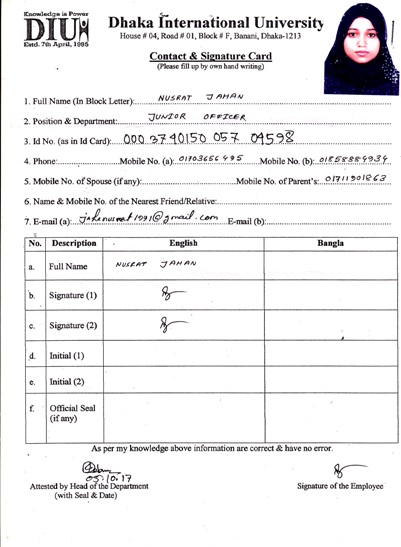 Knowledge is Power
DIU
Estd. 7th April, 1995
Dhaka International University
House # 04, Road # 01, Block # F, Banani, Dhaka-1213
Contact & Signature Card
(Please fill up by own hand writing)
1. Full Name (In Block Letter): NUSRAT JAHAN
2. Position & Department: JUNIOR OFFICER
3. Id No. (as in Id Card): 000 3740150 057 04598
4. Phone: Mobile No. (a): 01703656495 Mobile No. (b): 01858884934
5. Mobile No. of Spouse (if any): Mobile No. of Parent's: 01711901863
6. Name & Mobile No. of the Nearest Friend/Relative:
7. E-mail (a): @gmail.com E-mail (b):
No. Description English Bangla
a. Full Name NUSRAT JAHAN
b. Signature (1)
c. Signature (2)
d. Initial (1)
e. Initial (2)
f. Official Seal
(if any)
As per my knowledge above information are correct & have no error.
05.10.17
Attested by Head of the Department
(with Seal & Date)
Signature of the Employee